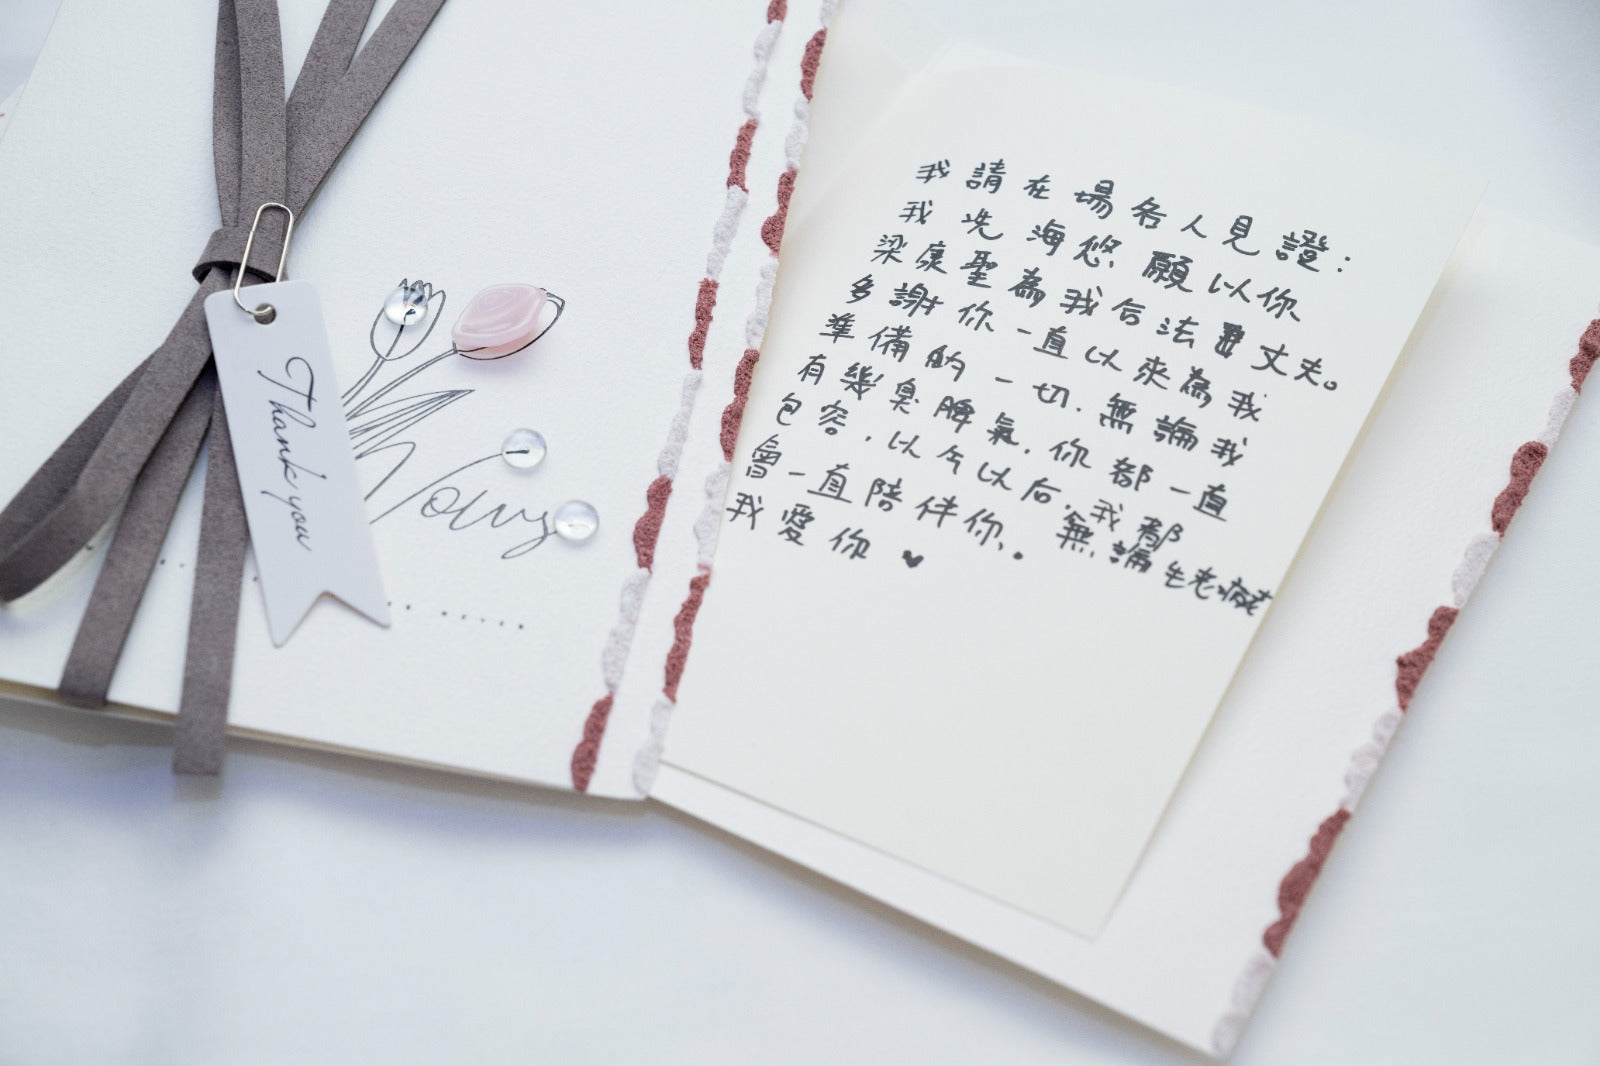 Thank you
Vows
我請在場各人見證：
我冼海悠願以你
梁康聖為我合法丈夫。
多謝你一直以來為我
準備的一切．無論我
有幾臭脾氣．你都一直
包容．以今以后，我都
會一直陪伴你．無論生老病
我愛你 ♥